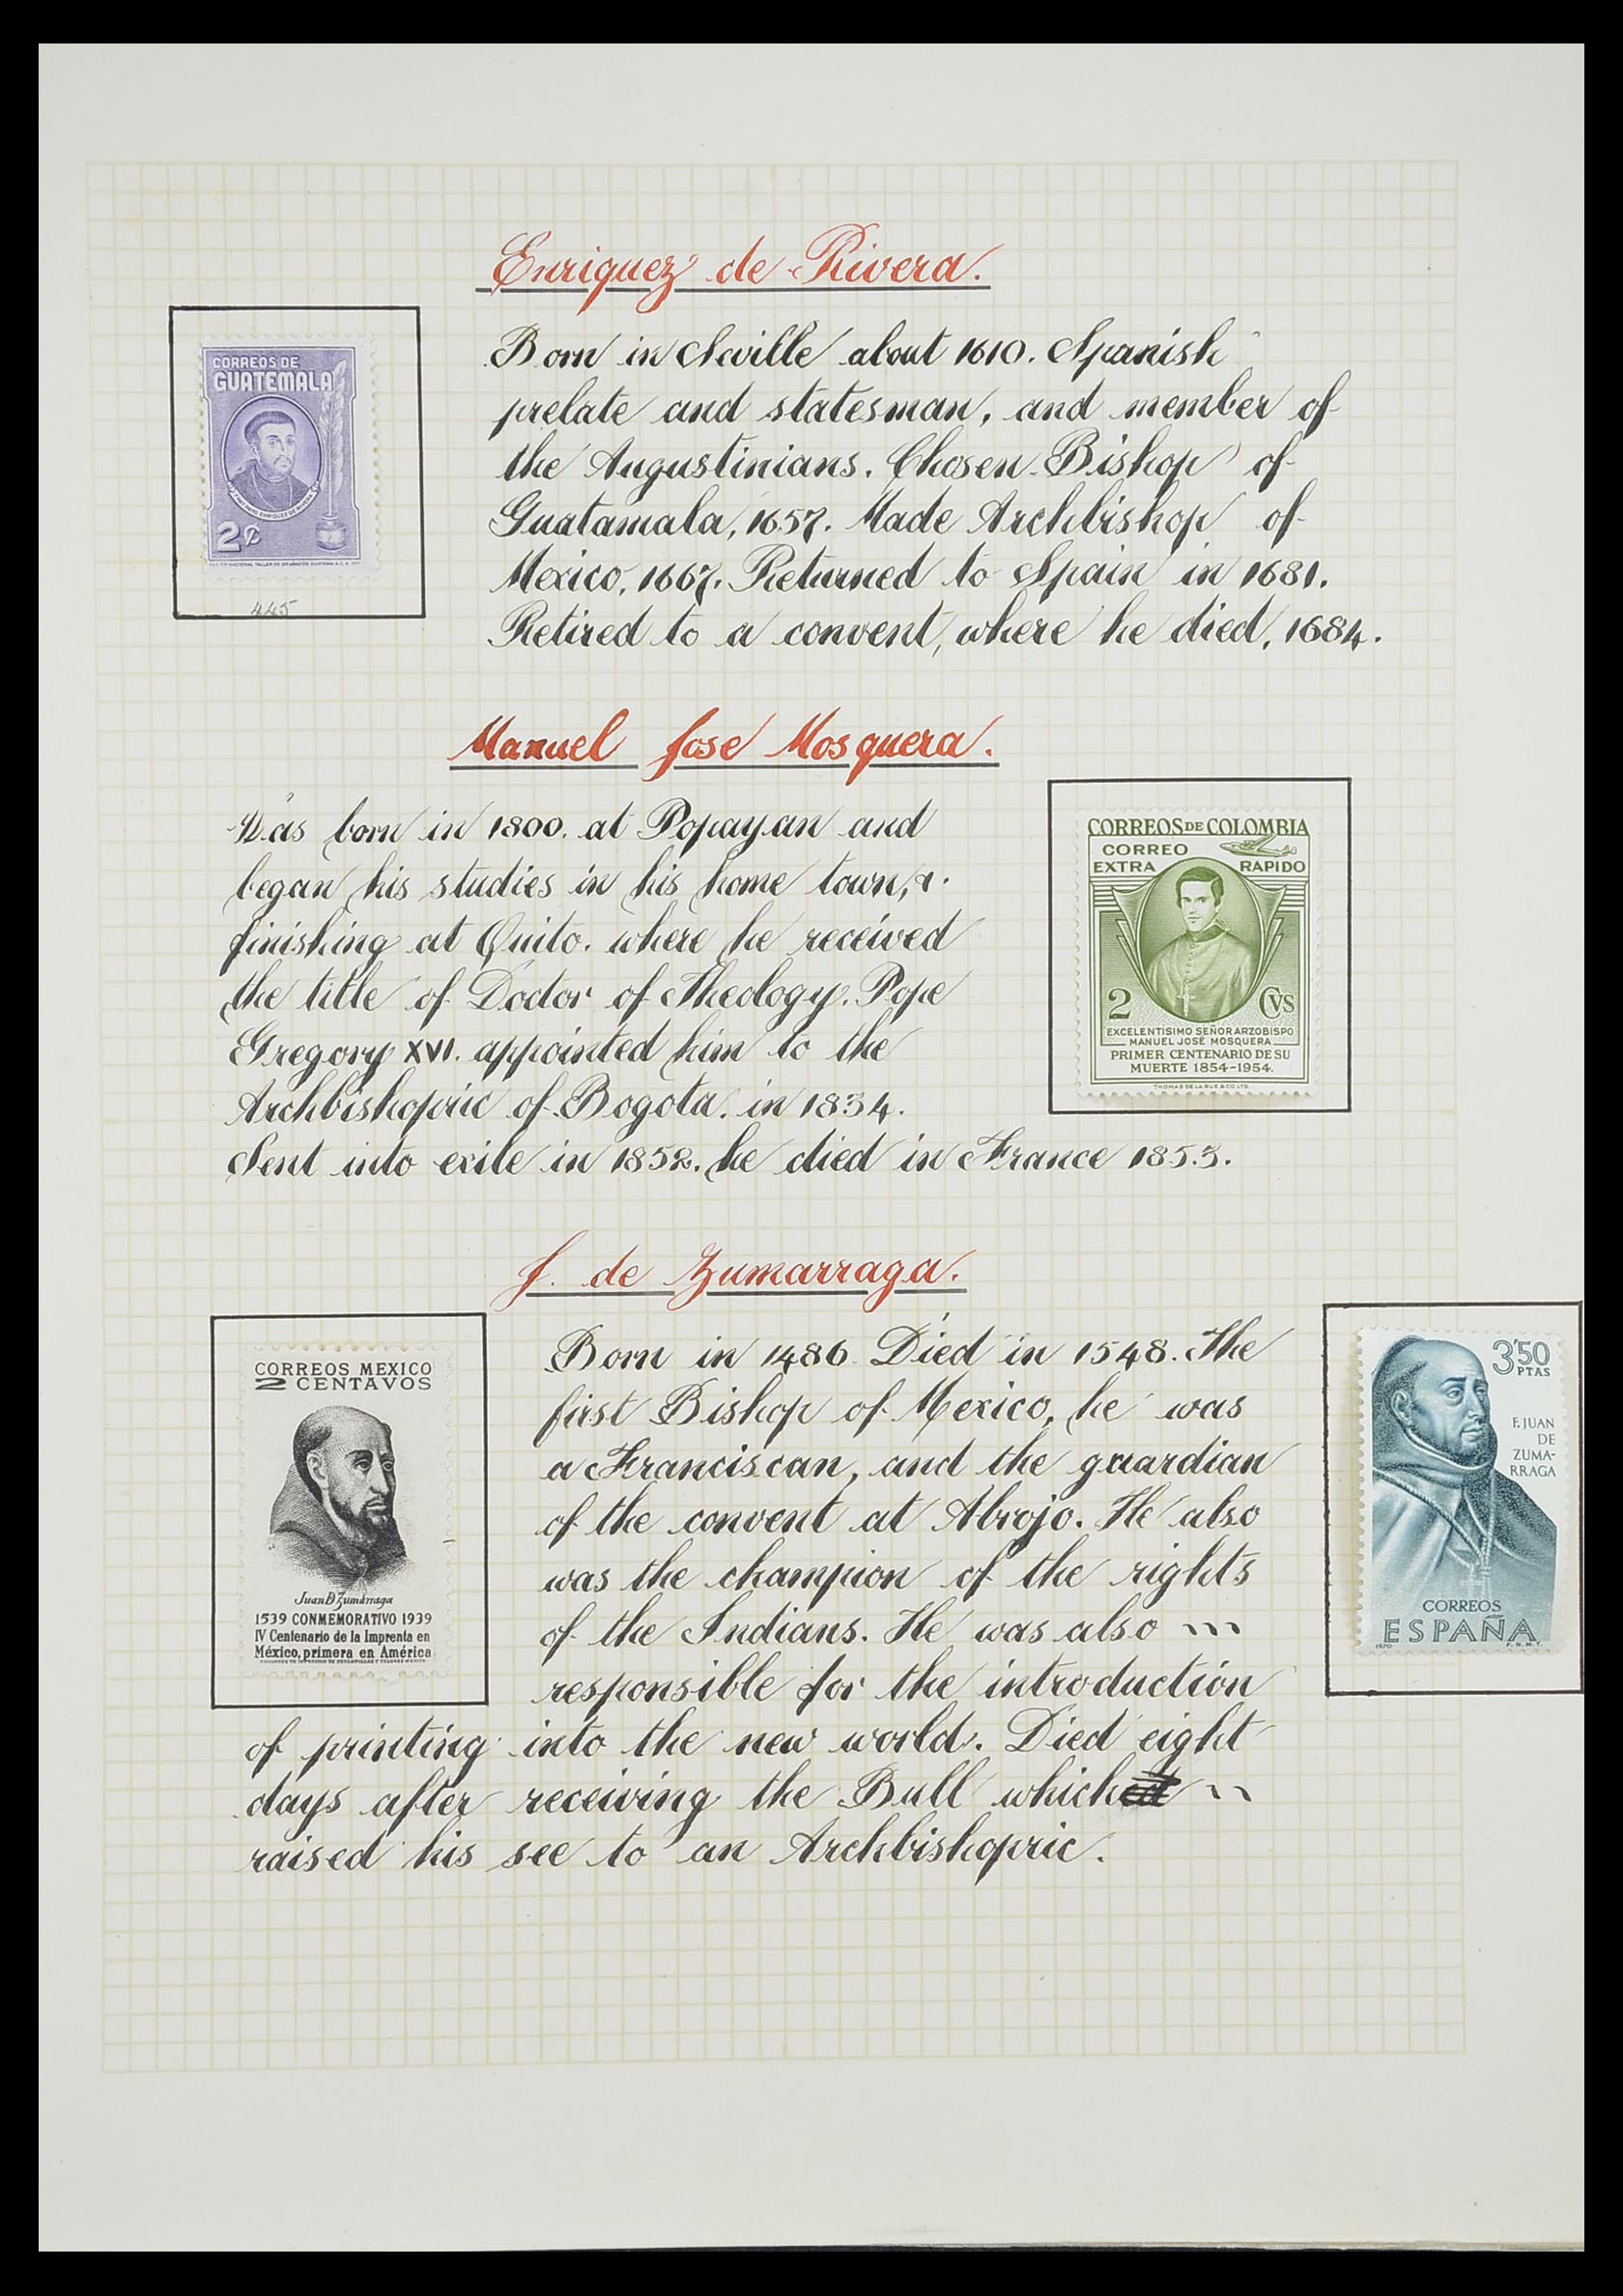 Enriquez de Rivera.
CORREOS DE
GUATEMALA
2¢
445
Born in Seville about 1610. Spanish
prelate and statesman, and member of
the Augustinians. Chosen Bishop of
Guatamala, 1657. Made Archbishop of
Mexico, 1667. Returned to Spain in 1681.
Retired to a convent, where he died, 1684.
Manuel Jose Mosquera.
Was born in 1800. at Popayan and
began his studies in his home town, &.
finishing at Quito. where he received
the title of Doctor of Theology. Pope
Gregory XVI. appointed him to the
Archbishopric of Bogota. in 1834.
Sent into exile in 1852. he died in France 1853.
CORREOS DE COLOMBIA
CORREO
EXTRA RAPIDO
2 CVS
EXCELENTISIMO SEÑOR ARZOBISPO
MANUEL JOSÉ MOSQUERA
PRIMER CENTENARIO DE SU
MUERTE 1854-1954.
THOMAS DE LA RUE & CO. LTD.
J. de Zumarraga.
CORREOS MEXICO
2 CENTAVOS
Juan D Zumárraga
1539 CONMEMORATIVO 1939
IV Centenario de la Imprenta en
México, primera en América
Born in 1486. Died in 1548. The
first Bishop of Mexico, he was
a Franciscan, and the guardian
of the convent at Abrojo. He also
was the champion of the rights
of the Indians. He was also
responsible for the introduction
of printing into the new world. Died eight
days after receiving the Bull which
raised his see to an Archbishopric.
3'50
PTAS
F. JUAN
DE
ZUMA-
RRAGA
CORREOS
ESPAÑA
1970 F.N.M.T.